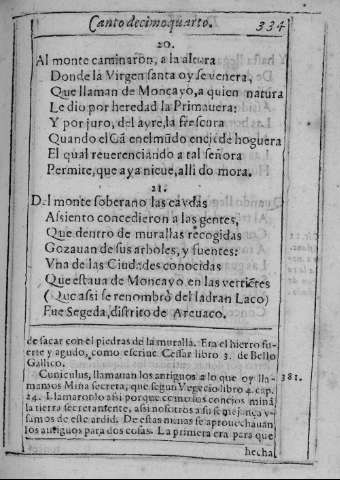 Canto decimoquarto. 334
20.
Al monte caminaron, a la altura
Donde la Virgen santa oy se venera,
Que llaman de Moncayo, a quien natura
Le dio por heredad la Primauera:
Y por juro, del ayre, la frescura
Quando el Cã enel mũdo enciẽde hoguera
El qual reuerenciando a tal señora
Permite, que aya nieue, alli do mora.
21.
Del monte soberano las caydas
Assiento concedieron a las gentes,
Que dentro de murallas recogidas
Gozauan de sus arboles, y fuentes:
Vna de las Ciudades conocidas
Que estaua de Moncayo en las vertiẽtes
(Que assi se renombrò del ladran Laco)
Fue Segeda, distrito de Areuaco.
de sacar con el piedras de la muralla. Era el hierro fu-
erte y agudo, como escriue Cessar libro 3. de Bello
Gallico.
Cuniculus, llamauan los antiguos a lo que oy lla- 381.
mamos Mina secreta, que segun Vegecio libro 4. cap.
24. Llamaronlo assi porque como los conejos minã
la tierra secretamente, assi nosotros a su semejança v-
samos de este ardid. De estas minas se aprouechauan
los antiguos para dos cosas. La primera era para que
hecha